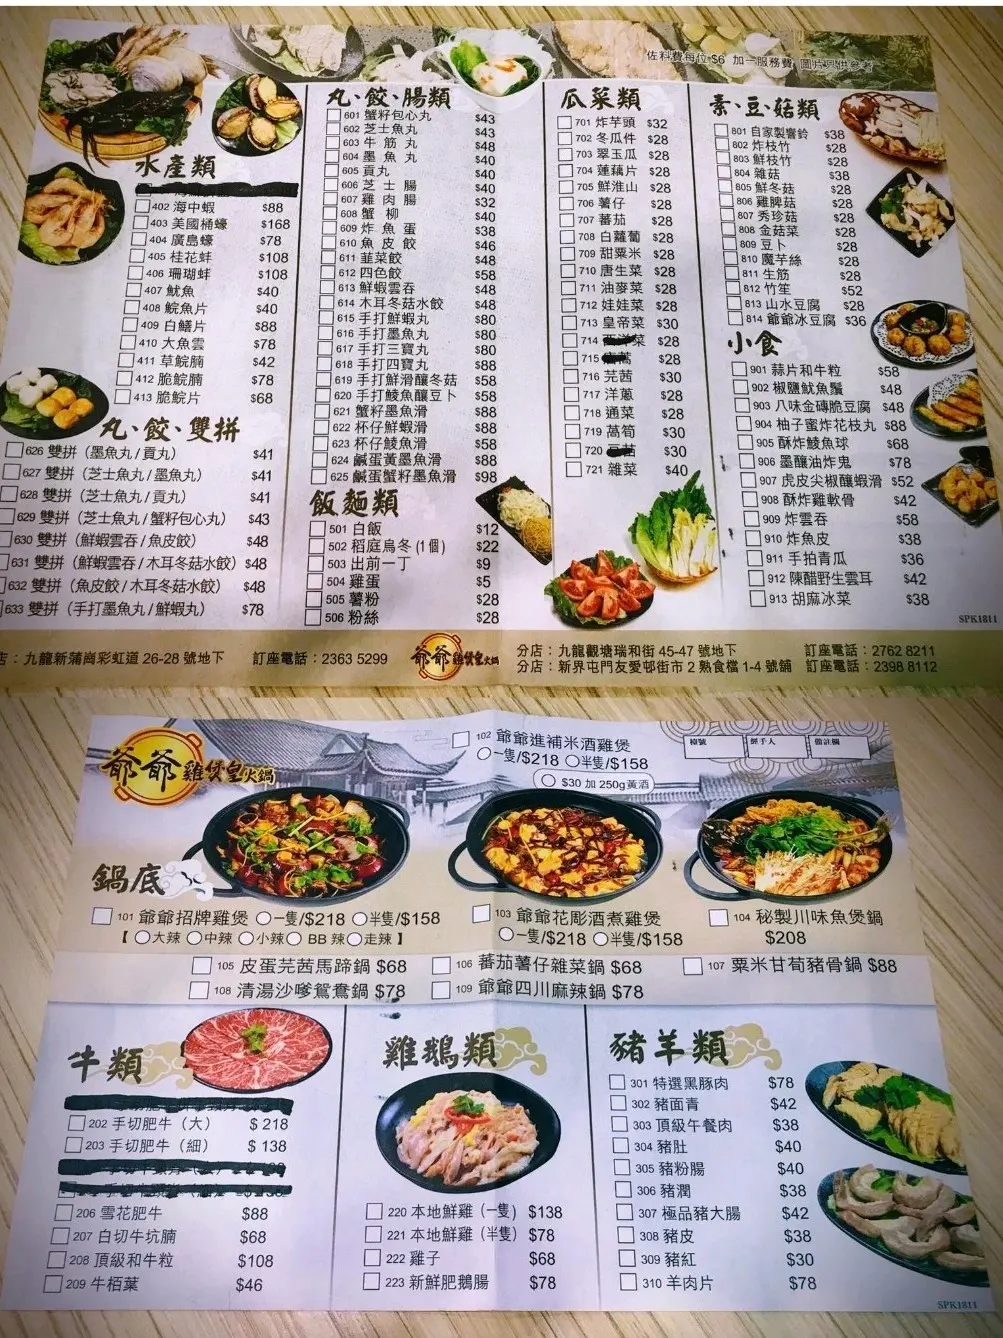 佐料費每位 $6 加一服務費 圖片只供參考
水產類
402 海中蝦 $88
403 美國桶蠔 $168
404 廣島蠔 $78
405 桂花蚌 $108
406 珊瑚蚌 $108
407 魷魚 $40
408 鯇魚片 $40
409 白鱔片 $88
410 大魚雲 $78
411 草鯇腩 $42
412 脆鯇腩 $78
413 脆鯇片 $68
丸、餃、雙拼
626 雙拼（墨魚丸/貢丸） $41
627 雙拼（芝士魚丸/墨魚丸） $41
628 雙拼（芝士魚丸/貢丸） $41
629 雙拼（芝士魚丸/蟹籽包心丸） $43
630 雙拼（鮮蝦雲吞/魚皮餃） $48
631 雙拼（鮮蝦雲吞/木耳冬菇水餃） $48
632 雙拼（魚皮餃/木耳冬菇水餃） $48
633 雙拼（手打墨魚丸/鮮蝦丸） $78
丸、餃、腸類
601 蟹籽包心丸 $43
602 芝士魚丸 $43
603 牛筋丸 $48
604 墨魚丸 $40
605 貢丸 $40
606 芝士腸 $40
607 雞肉腸 $32
608 蟹柳 $40
609 炸魚蛋 $38
610 魚皮餃 $46
611 韮菜餃 $48
612 四色餃 $58
613 鮮蝦雲吞 $48
614 木耳冬菇水餃 $48
615 手打鮮蝦丸 $80
616 手打墨魚丸 $80
617 手打三寶丸 $80
618 手打四寶丸 $88
619 手打鮮滑釀冬菇 $58
620 手打鯪魚釀豆卜 $58
621 蟹籽墨魚滑 $88
622 杯仔鮮蝦滑 $88
623 杯仔鯪魚滑 $58
624 鹹蛋黃墨魚滑 $88
625 鹹蛋蟹籽墨魚滑 $98
飯麵類
501 白飯 $12
502 稻庭烏冬 (1個) $22
503 出前一丁 $9
504 雞蛋 $5
505 薯粉 $28
506 粉絲 $28
瓜菜類
701 炸芋頭 $32
702 冬瓜件 $28
703 翠玉瓜 $28
704 蓮藕片 $28
705 鮮淮山 $28
706 薯仔 $28
707 蕃茄 $28
708 白蘿蔔 $28
709 甜粟米 $28
710 唐生菜 $28
711 油麥菜 $28
712 娃娃菜 $28
713 皇帝菜 $30
714 菜 $28
715 $28
716 芫茜 $30
717 洋蔥 $28
718 通菜 $28
719 萵筍 $30
720 $30
721 雜菜 $40
素、豆、菇類
801 自家製響鈴 $38
802 炸枝竹 $28
803 鮮枝竹 $28
804 雜菇 $38
805 鮮冬菇 $28
806 雞脾菇 $28
807 秀珍菇 $28
808 金菇菜 $28
809 豆卜 $28
810 魔芋絲 $28
811 生筋 $28
812 竹笙 $52
813 山水豆腐 $28
814 爺爺冰豆腐 $36
小食
901 蒜片和牛粒 $58
902 椒鹽魷魚鬚 $48
903 八味金磚脆豆腐 $48
904 柚子蜜炸花枝丸 $88
905 酥炸鯪魚球 $68
906 墨釀油炸鬼 $78
907 虎皮尖椒釀蝦滑 $52
908 酥炸雞軟骨 $42
909 炸雲吞 $58
910 炸魚皮 $38
911 手拍青瓜 $36
912 陳醋野生雲耳 $42
913 胡麻冰菜 $38
SPK1811
店：九龍新蒲崗彩虹道 26-28 號地下 訂座電話：2363 5299
爺爺雞煲皇火鍋
分店：九龍觀塘瑞和街 45-47 號地下 訂座電話：2762 8211
分店：新界屯門友愛邨街市 2 熟食檔 1-4 號舖 訂座電話：2398 8112
爺爺雞煲皇火鍋
102 爺爺進補米酒雞煲
一隻/$218 半隻/$158
$30 加 250g黃酒
檯號 經手人 備註欄
鍋底
101 爺爺招牌雞煲 一隻/$218 半隻/$158
【 大辣 中辣 小辣 BB 辣 走辣 】
103 爺爺花彫酒煮雞煲
一隻/$218 半隻/$158
104 秘製川味魚煲鍋
$208
105 皮蛋芫茜馬蹄鍋 $68
106 蕃茄薯仔雜菜鍋 $68
107 粟米甘筍豬骨鍋 $88
108 清湯沙嗲鴛鴦鍋 $78
109 爺爺四川麻辣鍋 $78
牛類
202 手切肥牛（大） $218
203 手切肥牛（細） $138
206 雪花肥牛 $88
207 白切牛坑腩 $68
208 頂級和牛粒 $108
209 牛栢葉 $46
雞鵝類
220 本地鮮雞（一隻） $138
221 本地鮮雞（半隻） $78
222 雞子 $68
223 新鮮肥鵝腸 $78
豬羊類
301 特選黑豚肉 $78
302 豬面青 $42
303 頂級午餐肉 $38
304 豬肚 $40
305 豬粉腸 $40
306 豬潤 $38
307 極品豬大腸 $42
308 豬皮 $38
309 豬紅 $30
310 羊肉片 $78
SPK1811